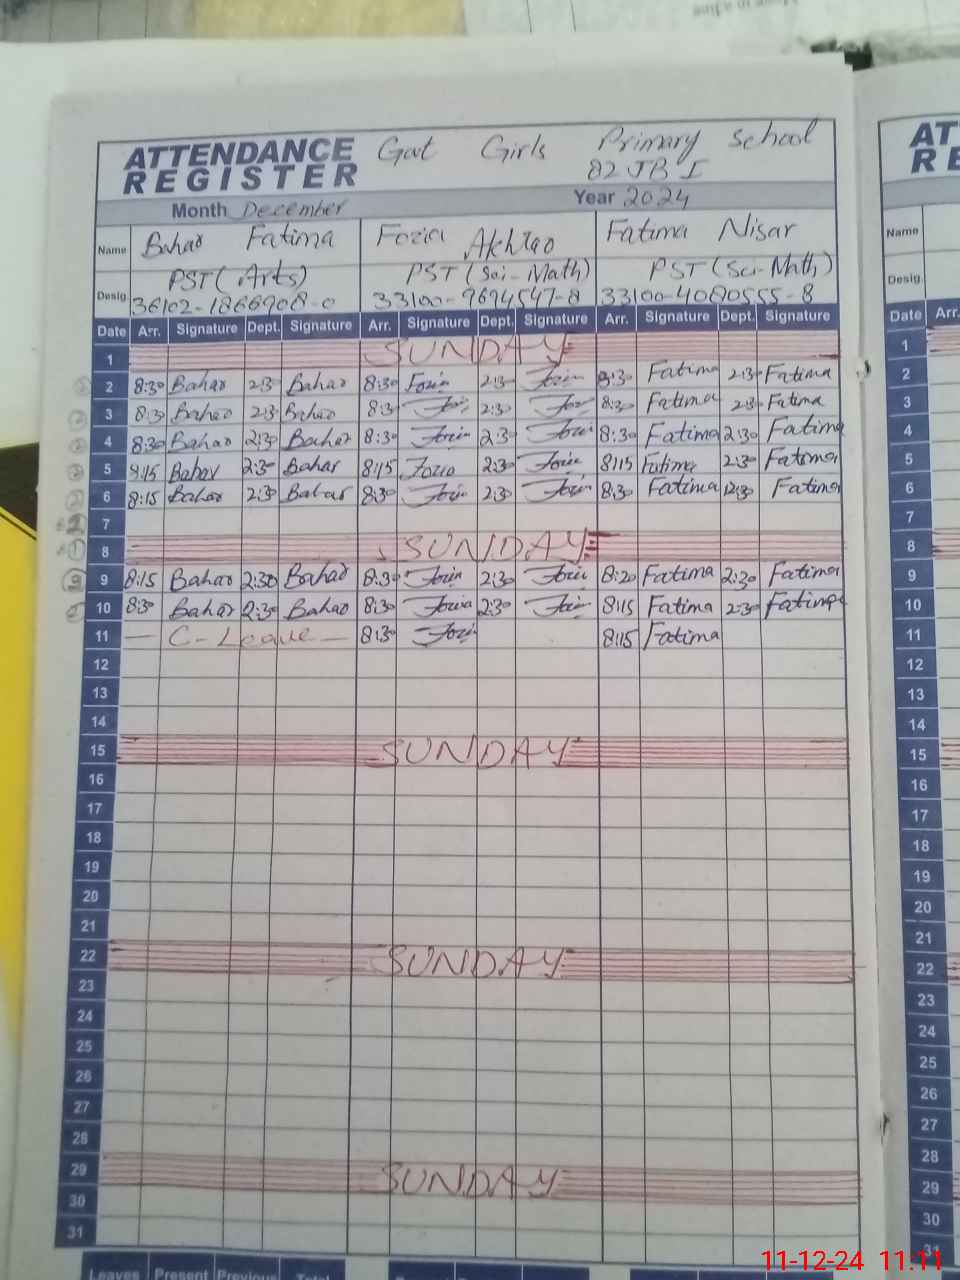 ATTENDANCE REGISTER Govt Girls Primary School
82 JB I
Month December Year 2024
Name Bahar Fatima Fozia Akhtar Fatima Nisar
Desig. PST (Arts) PST (Sci-Math) PST (Sci-Math)
36102-1866908-0 33100-9694547-8 33100-4080555-8
Date Arr. Signature Dept. Signature Arr. Signature Dept. Signature Arr. Signature Dept. Signature
1 SUNDAY
2 8:30 Bahar 2:30 Bahar 8:30 Fozia 2:30 Fozia 8:30 Fatima 2:30 Fatima
3 8:30 Bahar 2:30 Bahar 8:30 Fozia 2:30 Fozia 8:30 Fatima 2:30 Fatima
4 8:30 Bahar 2:30 Bahar 8:30 Fozia 2:30 Fozia 8:30 Fatima 2:30 Fatima
5 8:15 Bahar 2:30 Bahar 8:15 Fozia 2:30 Fozia 8:15 Fatima 2:30 Fatima
6 8:15 Bahar 2:30 Bahar 8:30 Fozia 2:30 Fozia 8:30 Fatima 2:30 Fatima
7
8 SUNDAY
9 8:15 Bahar 2:30 Bahar 8:30 Fozia 2:30 Fozia 8:20 Fatima 2:30 Fatima
10 8:30 Bahar 2:30 Bahar 8:30 Fozia 2:30 Fozia 8:15 Fatima 2:30 Fatima
11 — C-Leave — 8:30 Fozia 8:15 Fatima
12
13
14
15 SUNDAY
16
17
18
19
20
21
22 SUNDAY
23
24
25
26
27
28
29 SUNDAY
30
31
Leaves Present Previous Total
AT
RE
Name
Desig.
Date Arr.
1
2
3
4
5
6
7
8
9
10
11
12
13
14
15
16
17
18
19
20
21
22
23
24
25
26
27
28
29
30
31
11-12-24 11:11